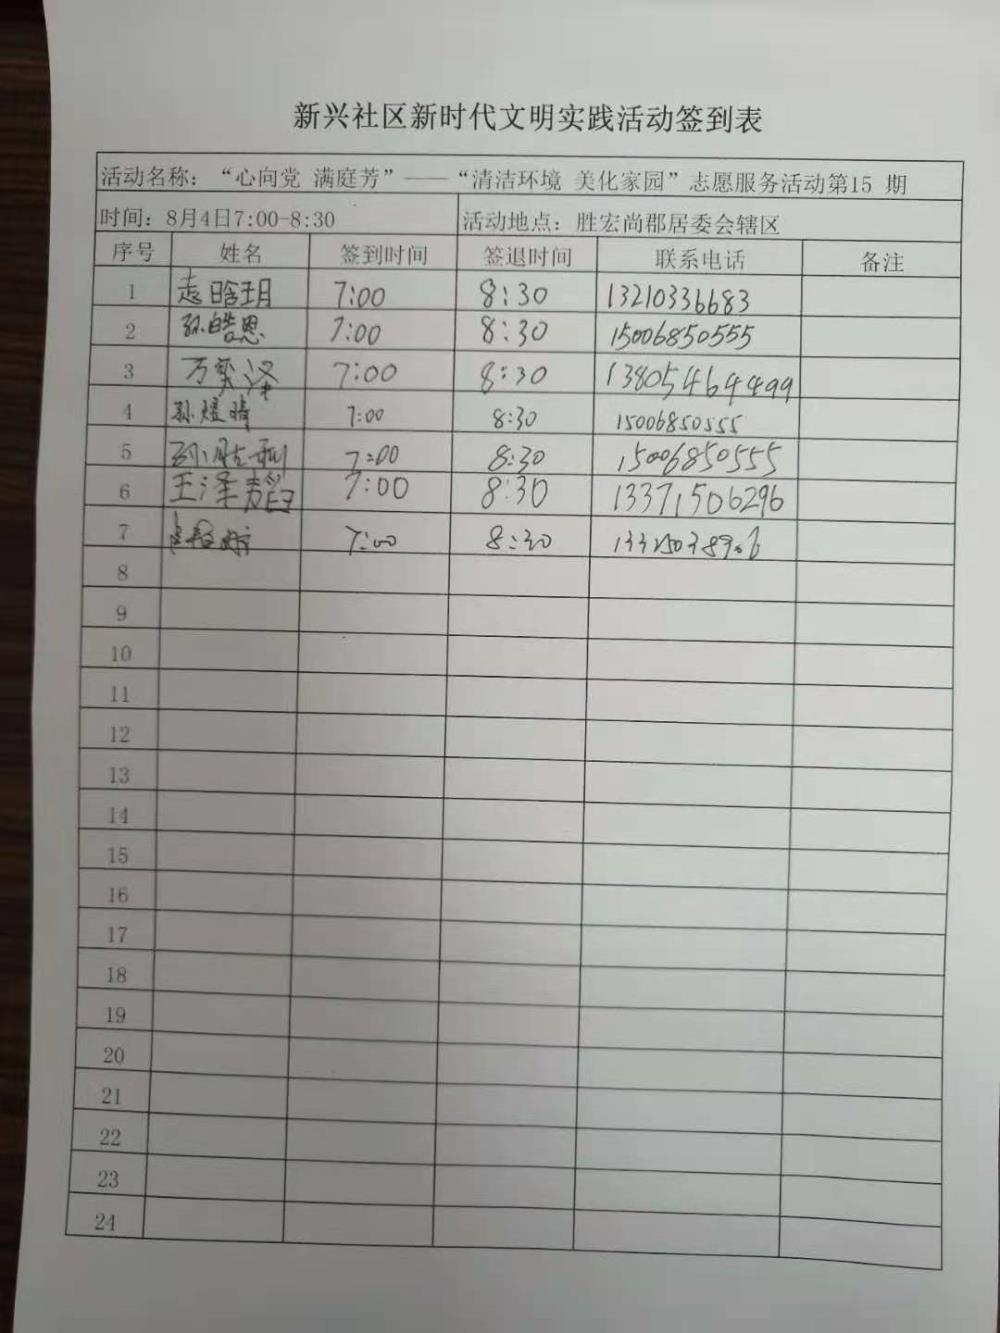 新兴社区新时代文明实践活动签到表
活动名称：“心向党 满庭芳”——“清洁环境 美化家园”志愿服务活动第15 期
时间：8月4日7:00-8:30 活动地点：胜宏尚郡居委会辖区
序号 姓名 签到时间 签退时间 联系电话 备注
1 7:00 8:30 13210336683
2 孙皓恩 7:00 8:30 15006850555
3 万奕泽 7:00 8:30 13805464499
4 孙煜晴 7:00 8:30 15006850555
5 孙胜利 7:00 8:30 15006850555
6 王泽 7:00 8:30 13371506296
7 7:00 8:30
8
9
10
11
12
13
14
15
16
17
18
19
20
21
22
23
24